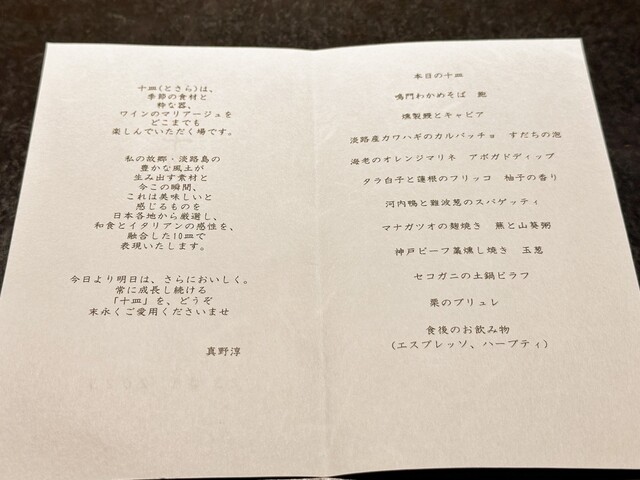 十皿(とさら)は、
季節の食材と
粋な器、
ワインのマリアージュを
どこまでも
楽しんでいただく場です。
私の故郷・淡路島の
豊かな風土が
生み出す素材と
今この瞬間、
これは美味しいと
感じるものを
日本各地から厳選し、
和食とイタリアンの感性を、
融合した10皿で
表現いたします。
今日より明日は、さらにおいしく。
常に成長し続ける
「十皿」を、どうぞ
末永くご愛用くださいませ
真野淳
本日の十皿
鳴門わかめそば　鮑
燻製鰻とキャビア
淡路産カワハギのカルパッチョ　すだちの泡
海老のオレンジマリネ　アボガドディップ
タラ白子と蓮根のフリッコ　柚子の香り
河内鴨と難波葱のスパゲッティ
マナガツオの麹焼き　蕪と山葵粥
神戸ビーフ藁燻し焼き　玉葱
セコガニの土鍋ピラフ
栗のブリュレ
食後のお飲み物
(エスプレッソ、ハーブティ)